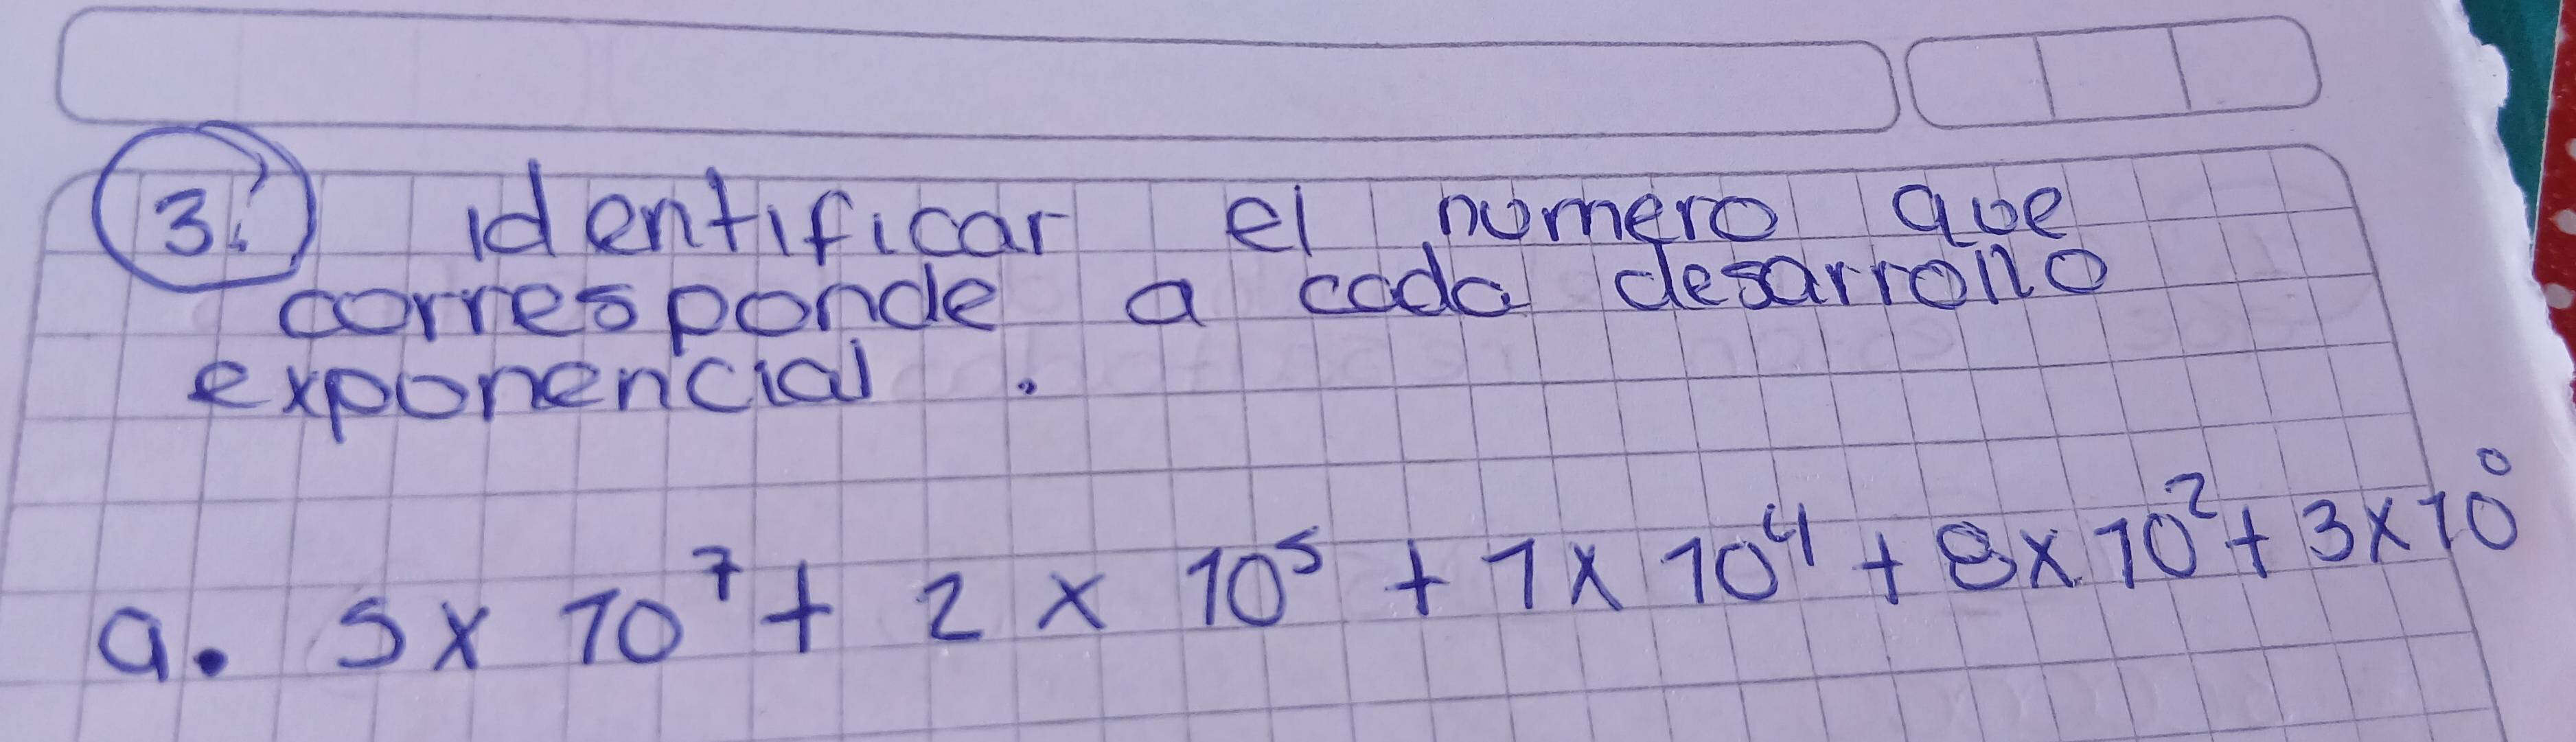 3. identificar el número que
corresponde a cada desarrollo
exponencial .
a. 5 x 10⁷ + 2 x 10⁵ + 1 x 10⁴ + 8 x 10² + 3 x 10⁰